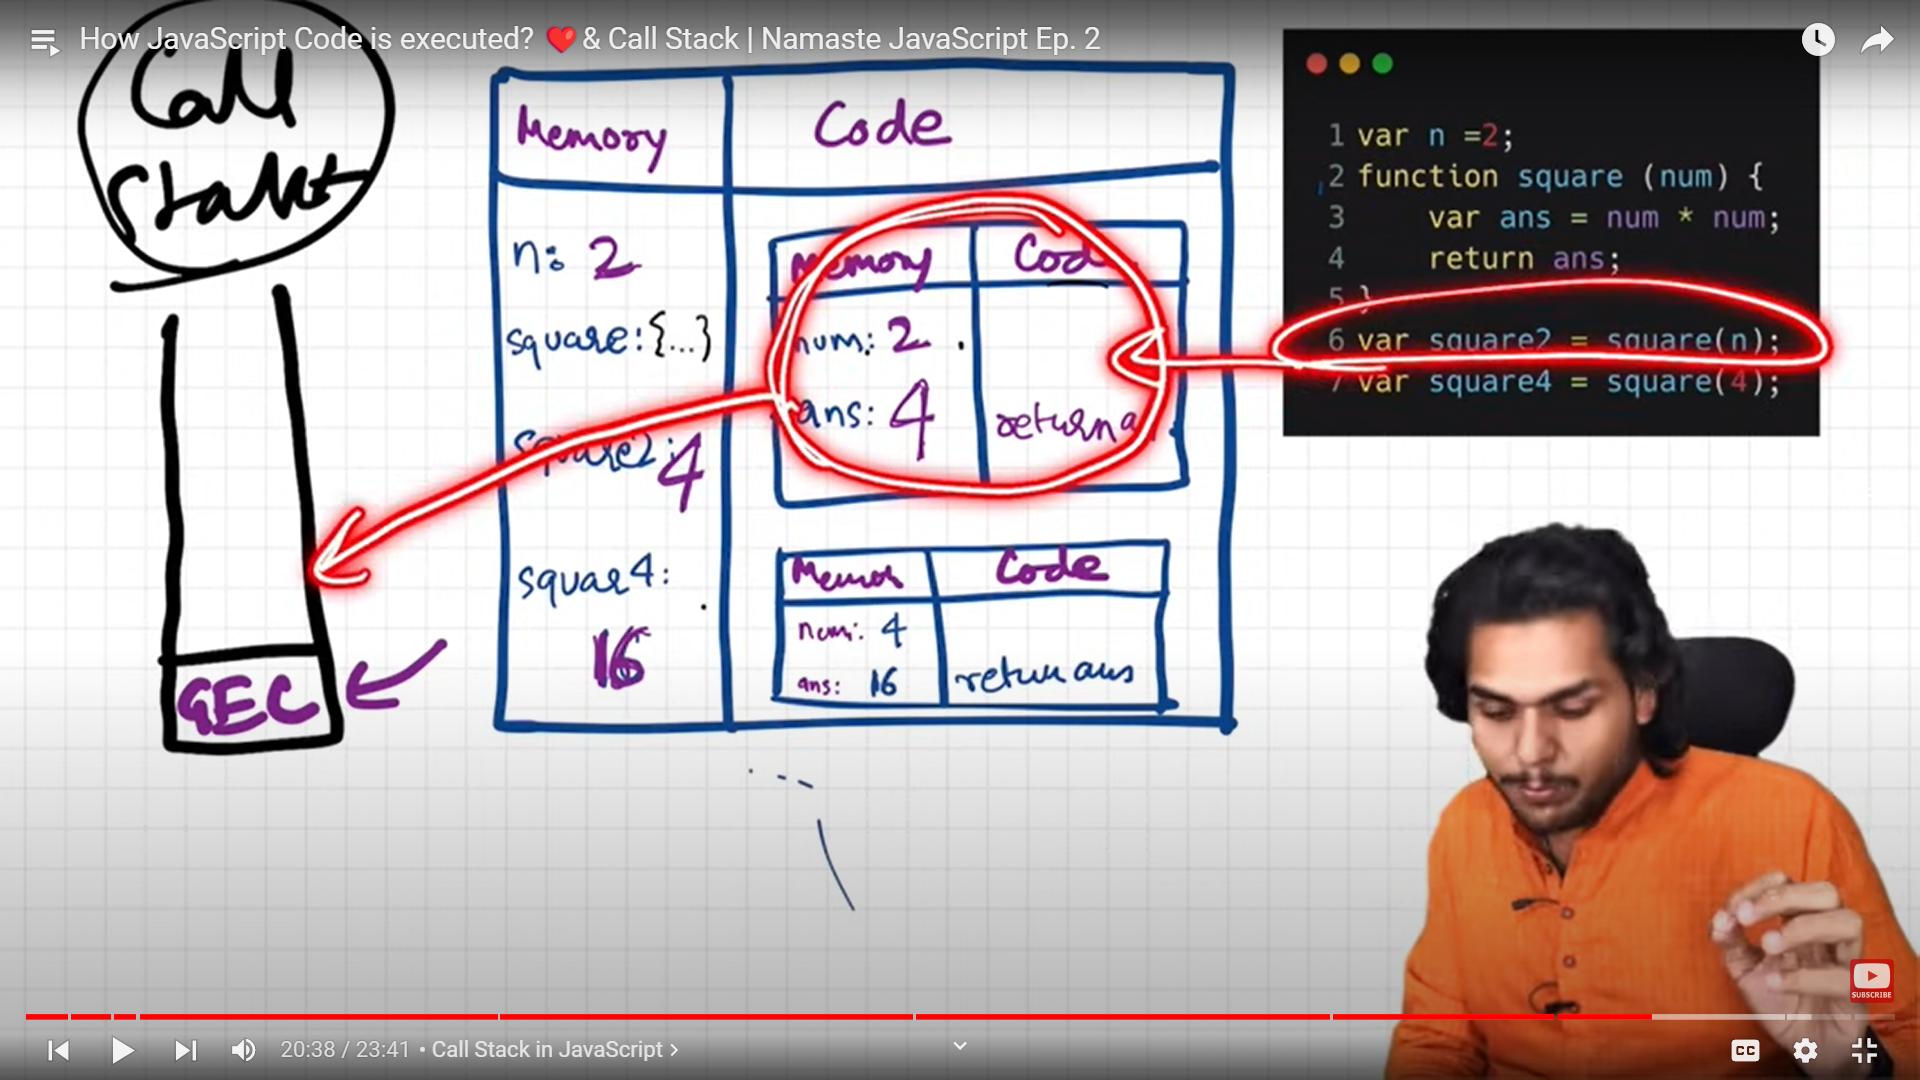 How JavaScript Code is executed? ❤️& Call Stack | Namaste JavaScript Ep. 2
Call
Stakt
GEC
Memory
Code
n: 2
square:{...}
square2:
4
squar4:
16
Memory
Cod
num: 2
ans: 4
return a
Memor
Code
num: 4
ans: 16
return ans
1 var n =2;
2 function square (num) {
3 var ans = num * num;
4 return ans;
5 }
6 var square2 = square(n);
7 var square4 = square(4);
SUBSCRIBE
20:38 / 23:41 • Call Stack in JavaScript ›
CC